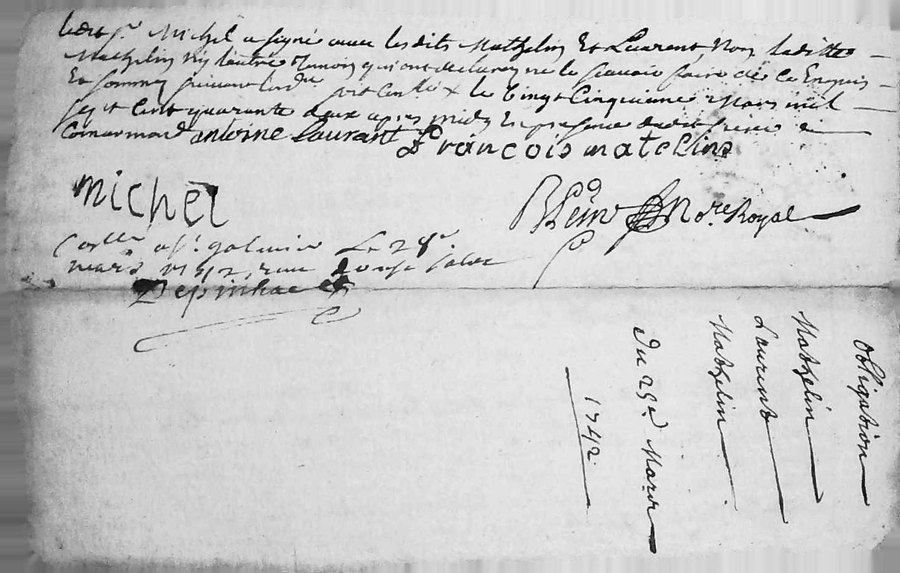 ledit Sr. Michel a signé avec lesdits Mathelin Et Laurent, Non laditte
Mathelin Ny l'autre Temoin qui ont declaré ne le scavoir faire de ce Enquis
Et sommés suivant lord.re le vingt cinquieme Mars mil
sept Cent quarante deux apres midy En presence dudit Sieur
antoine Laurant François matelins
michel
No.re Royal
Con.lle a St. galmier Le 28e
mars 1742, reçu douze
Depinhac
Obligation
Mathelin
Laurent
Mathelin
Du 25e Mars
1742